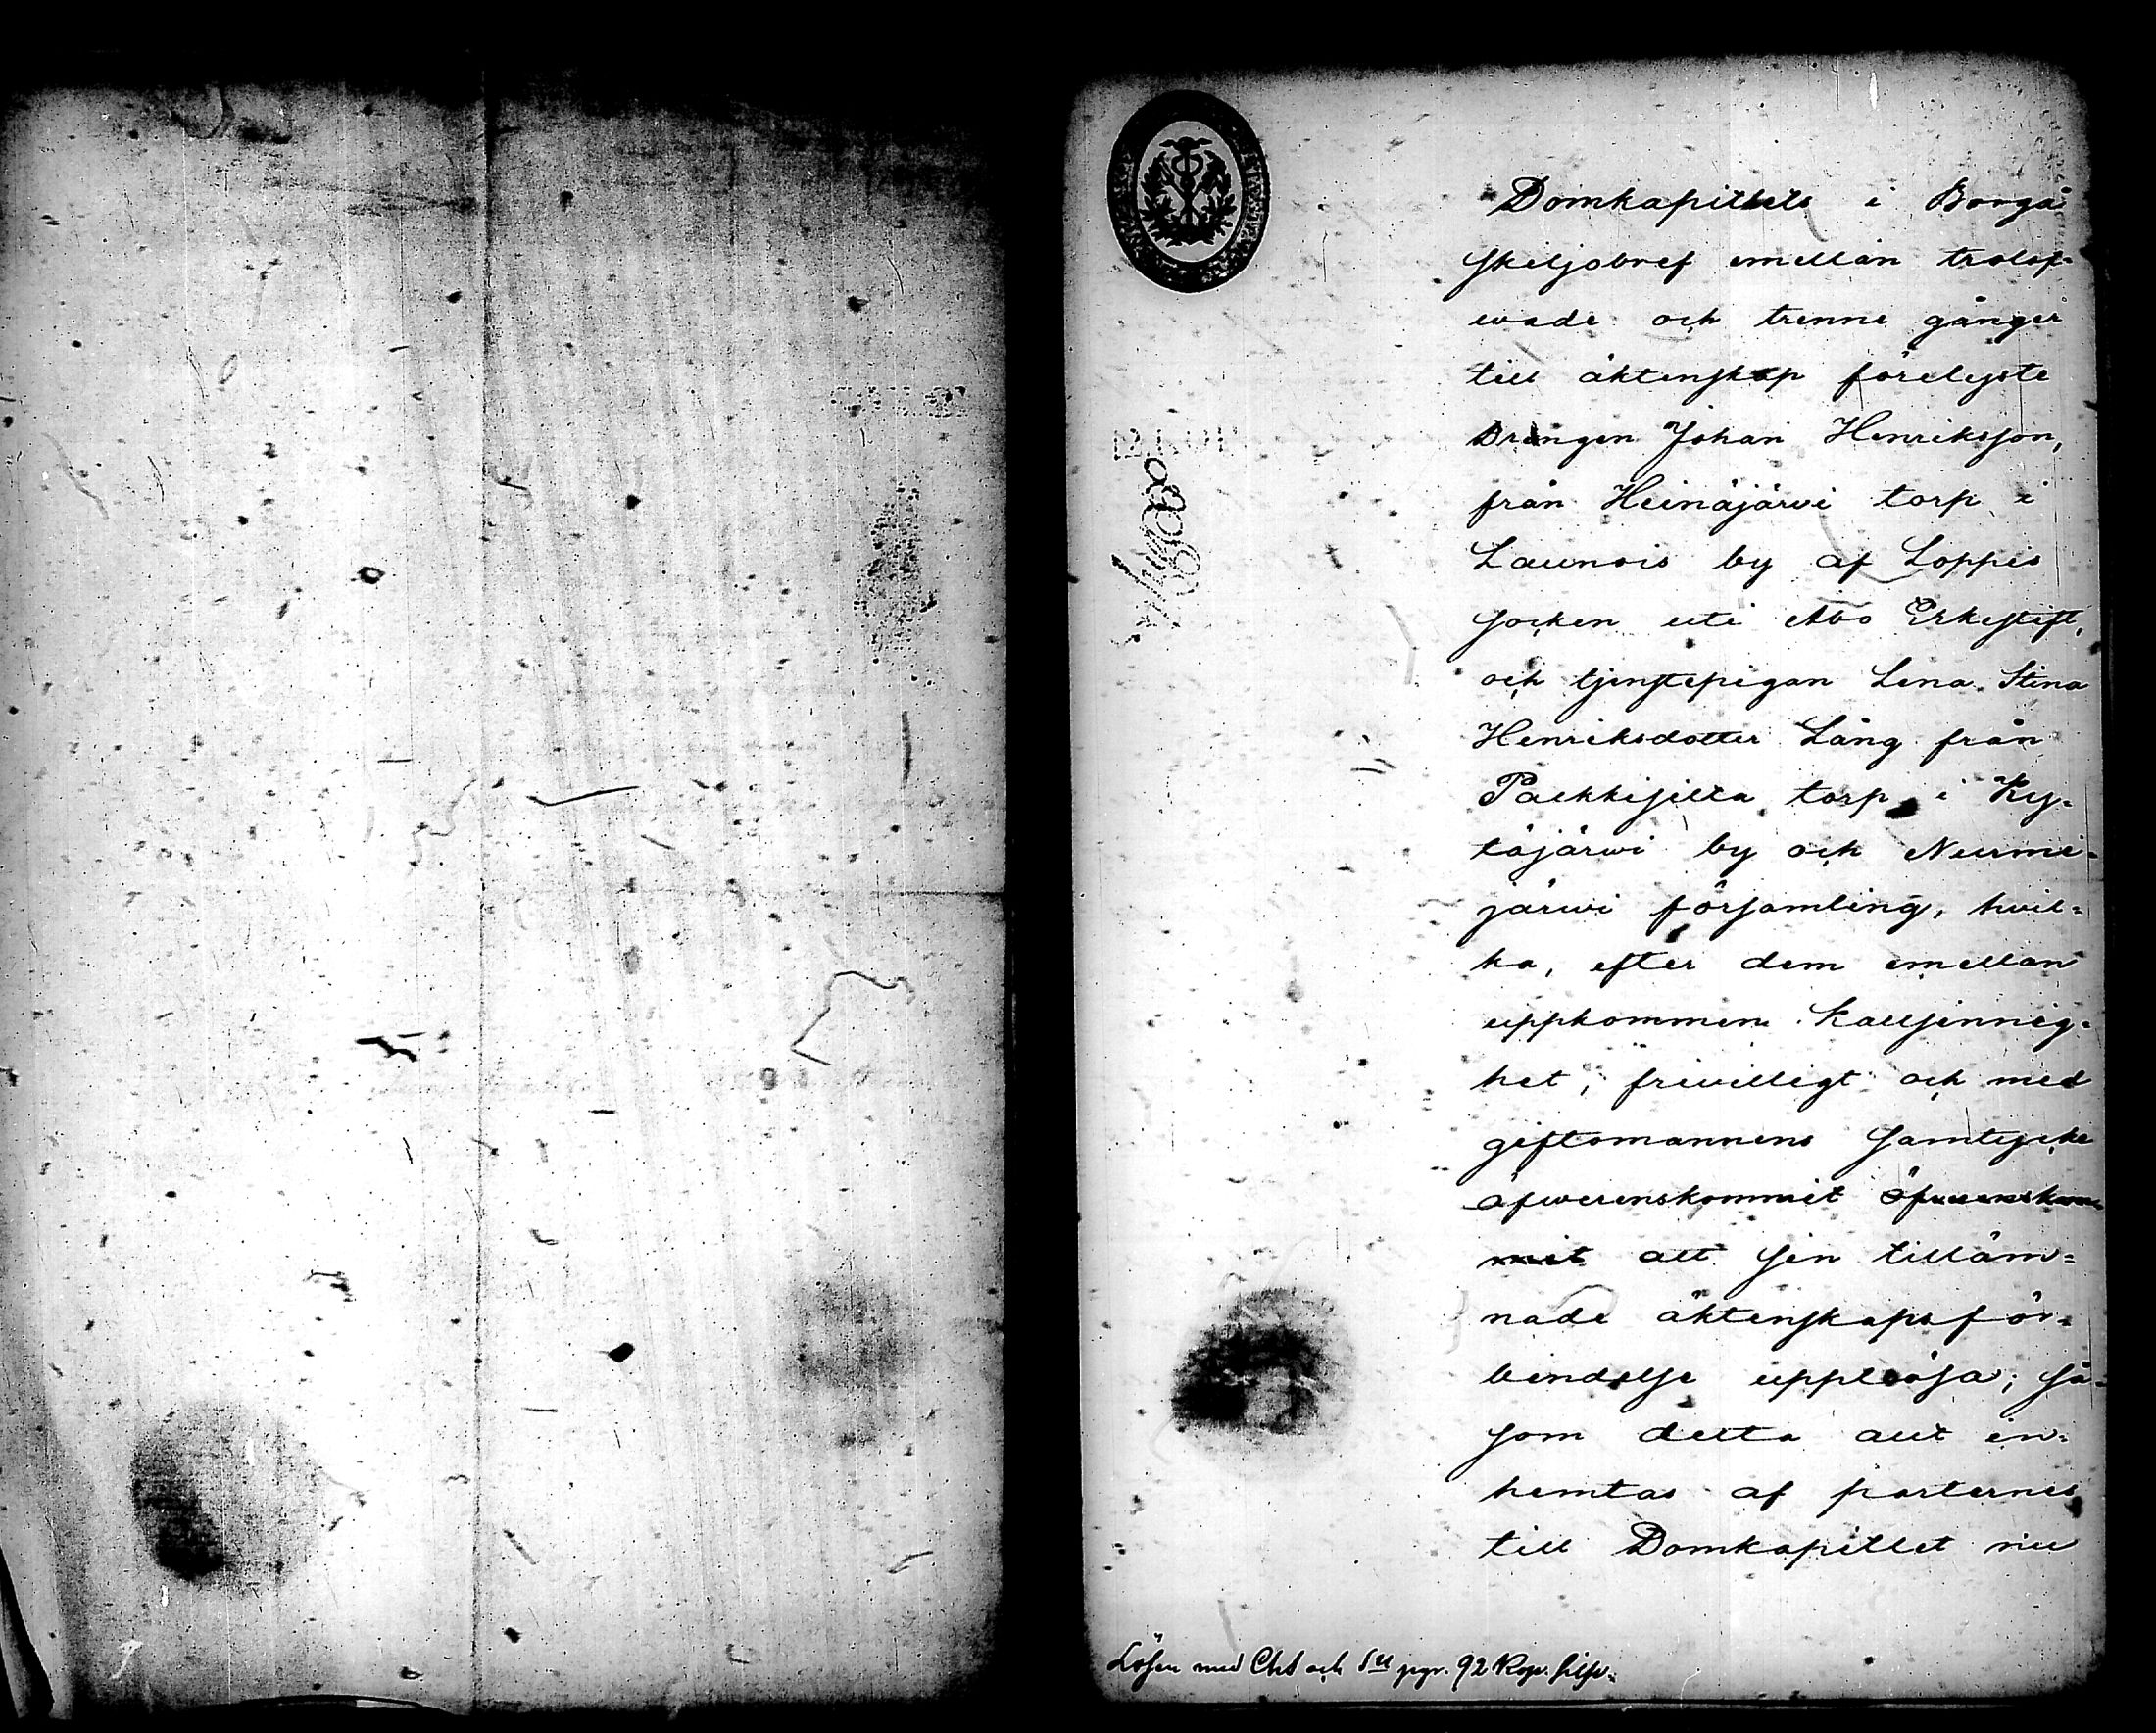 Domkapitlets i Borgå
skiljobref emellan trolof-
wade och trenne gånger
till äktenskap förelyste
Drängen Johan Henriksson,
från Heinäjärwi torp i
Launois by af Loppis
socken uti Åbo Erkestift,
och tjenstepigan Lena Stina
Henriksdotter Lång från
Palkkisilta torp i Ky-
täjärwi by och Nurmi-
järwi församling, hvil-
ka, efter dem emellan
uppkommen kallsinnig-
het, friwilligt och med
giftomannens samtycke
öfwerenskommit öfwerenskom
mit att sin tilläm-
nade äktenskapsför-
bindelse upplösa; så-
som detta allt in-
hemtas af parternes
till Domkapitlet nu
Lösen med Cht och 92 Kop. silfr.